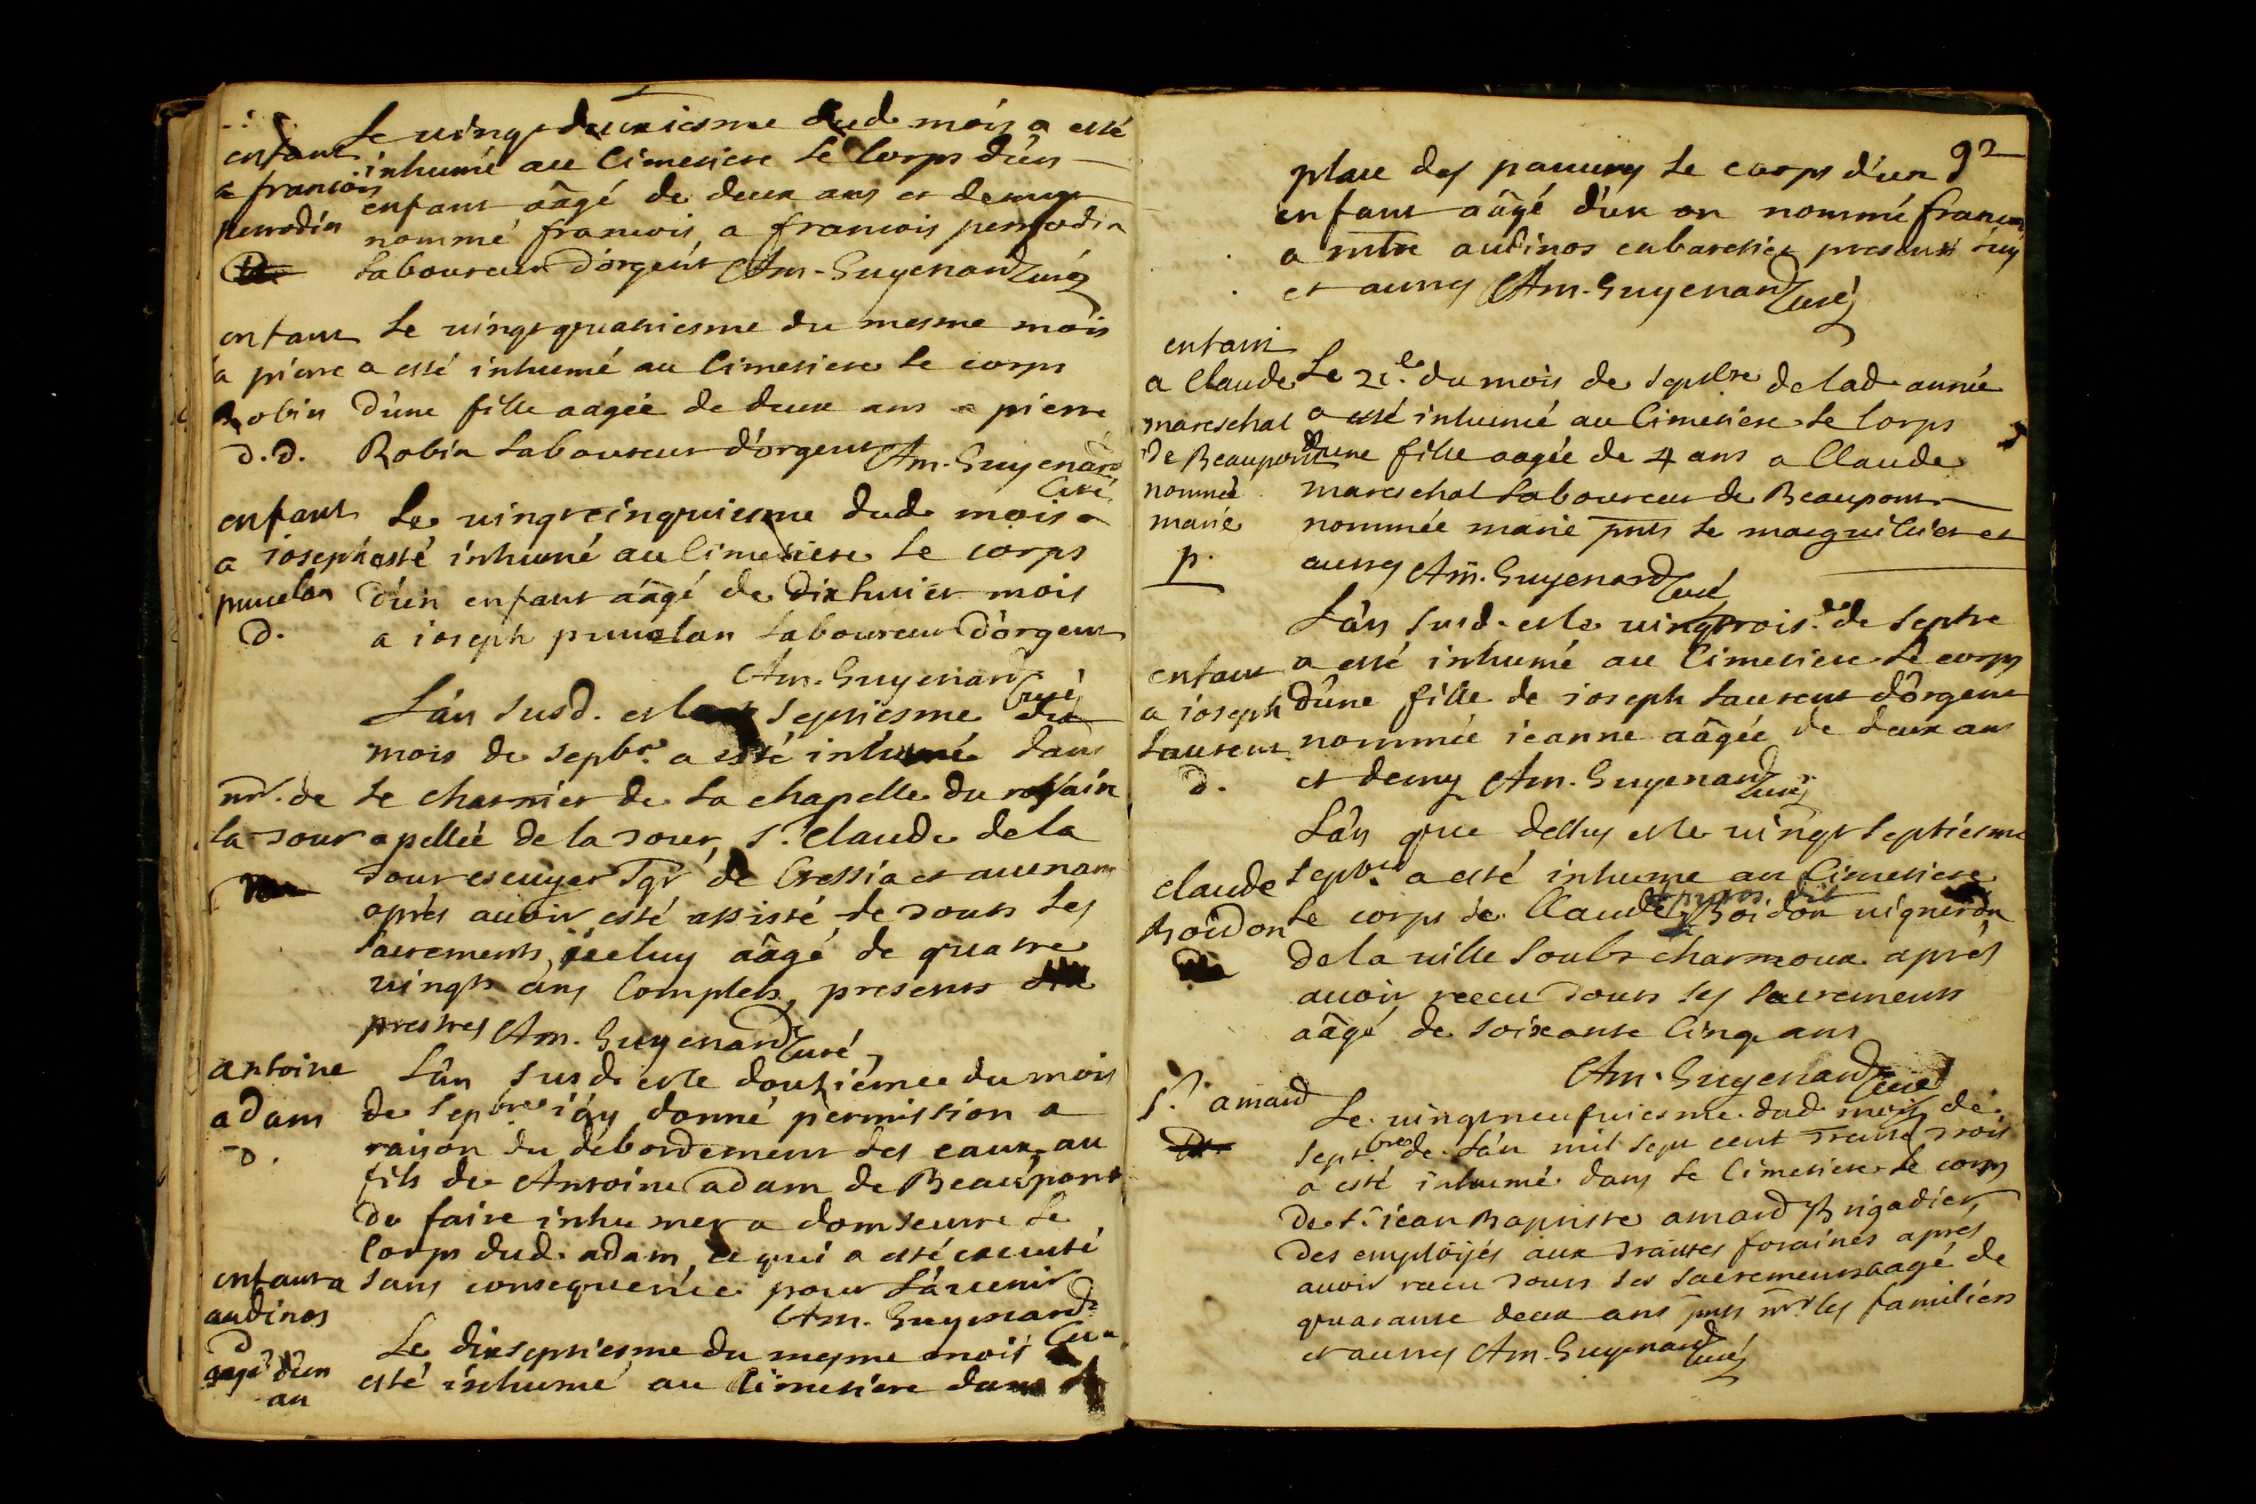 Le vingtdeuxiesme dud. mois a esté
enfant
inhumé au Cimetiere le Corps d'un
a francois
enfant aâgé de deux ans et demy
perrodin
nommé francois a francois perrodin
laboureur d'orgent Am. Guyenard Curé
enfant le vingtquatriesme du mesme mois
a pierre a esté inhumé au Cimetiere le corps
Robin d'une fille aagée de deux ans a pierre
D.D. Robin laboureur d'orgent Am. Guyenard
Curé
enfant Le vingtcinquiesme dud. mois a
a ioseph esté inhumé au Cimetiere le corps
d'un enfant aâgé de dixhuict mois
D. a ioseph laboureur d'orgent
Am. Guyenard
Curé
L'an susd. et le septiesme du
mois de sepbre. a esté inhumé dans
mr. de le charnier de la chapelle du
la tour apellée de la tour, Sr. Claude de la
tour escuyer Sgr de Cressia et
après avoir esté assisté de tous les
sacrements, iceluy aâgé de quatre
vingts ans Complets, presents
prestres Am. Guyenard Curé
antoine L'an susd. et le douziéme du mois
adam de sepbre i'ay donné permission a
D. raison du débordement des eaux au
fils de Antoine adam de Beaupont
de faire inhumer a domseurre le
Corps dud. adam, ce qui a esté executé
enfant a sans consequence pour l'avenir
audinos
Am. Guyenard
D
Curé
Le dixseptiesme du mesme mois a
aagé d'un
esté inhumé au Cimetiere dans la
an
92
place des pauvres le corps d'un
enfant aâgé d'un an nommé francois
a audinos cabaretier presents
et autres Am. Guyenard Curé
enfant
a Claude Le 21e. du mois de septbre de lad. année
mareschal a esté inhumé au Cimetiere le Corps
de Beaupont d'une fille aagée de 4 ans a Claude
nommée mareschal laboureur de Beaupont
marie nommée marie pnts le marguillier et
p. autres Am. Guyenard Curé
L'an susd. et le vingtrois.e de septre
enfant a esté inhumé au Cimetiere le corps
a ioseph d'une fille de ioseph laurent d'orgent
laurent nommée ieanne aâgée de deux ans
D. et demy Am. Guyenard Curé
L'an que dessus et le vingt septiesme
claude sepbre a esté inhumé au Cimetiere
dit
Boidon le corps de Claude Boidon vigneron
de la ville soubs charmoux après
avoir receu touts les sacrements
aâgé de soixante Cinq ans
Am. Guyenard Curé
Sr. amard
Le vingtneufviesme dud. mois de
septbre de l'an mil sept cent trente trois
a esté inhumé dans le Cimetiere le corps
de Sr. iean Baptiste amard Brigadier
des employés aux traittes foraines apres
avoir receu touts les sacrements aagé de
quarante deux ans pnts mrs les familiers
et autres Am. Guyenard Curé